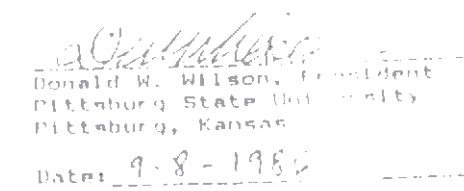 Donald W. Wilson, President
Pittsburg State University
Pittsburg, Kansas
Date: 9-8-198